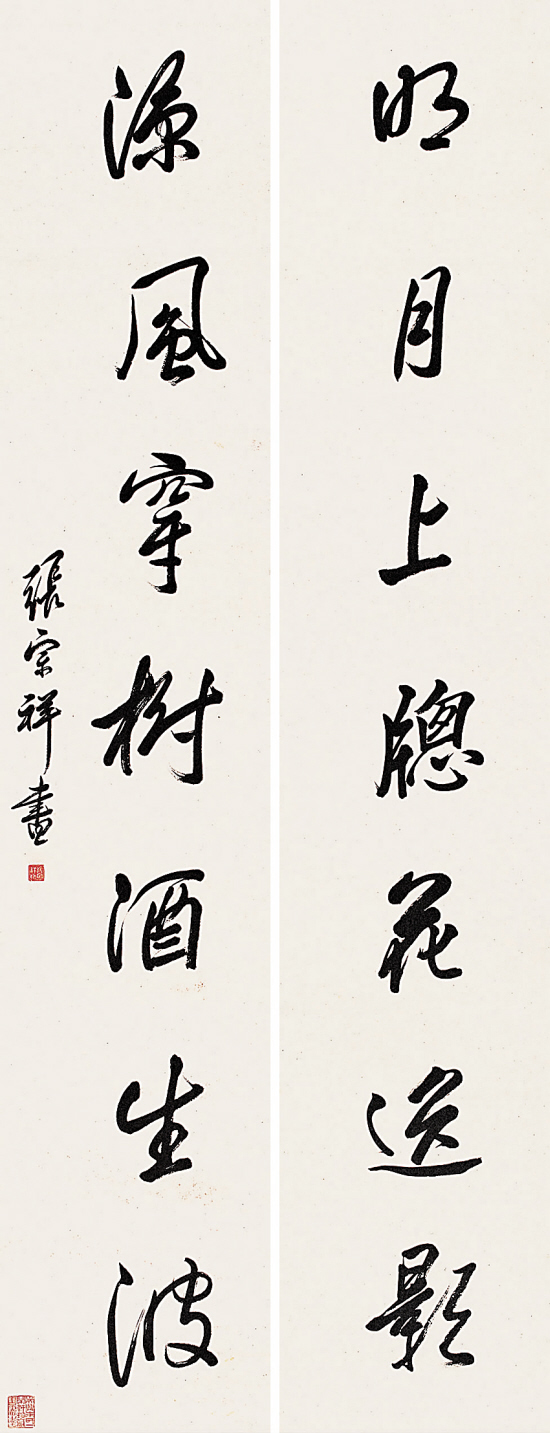 明月上牕花送影
凉風穿樹酒生波
張宗祥書